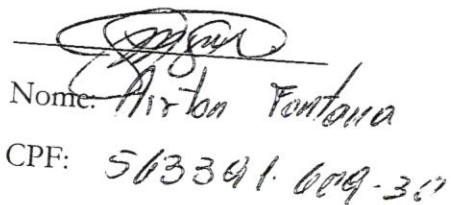 Nome: Airton Fontana
CPF: 563391.609-30